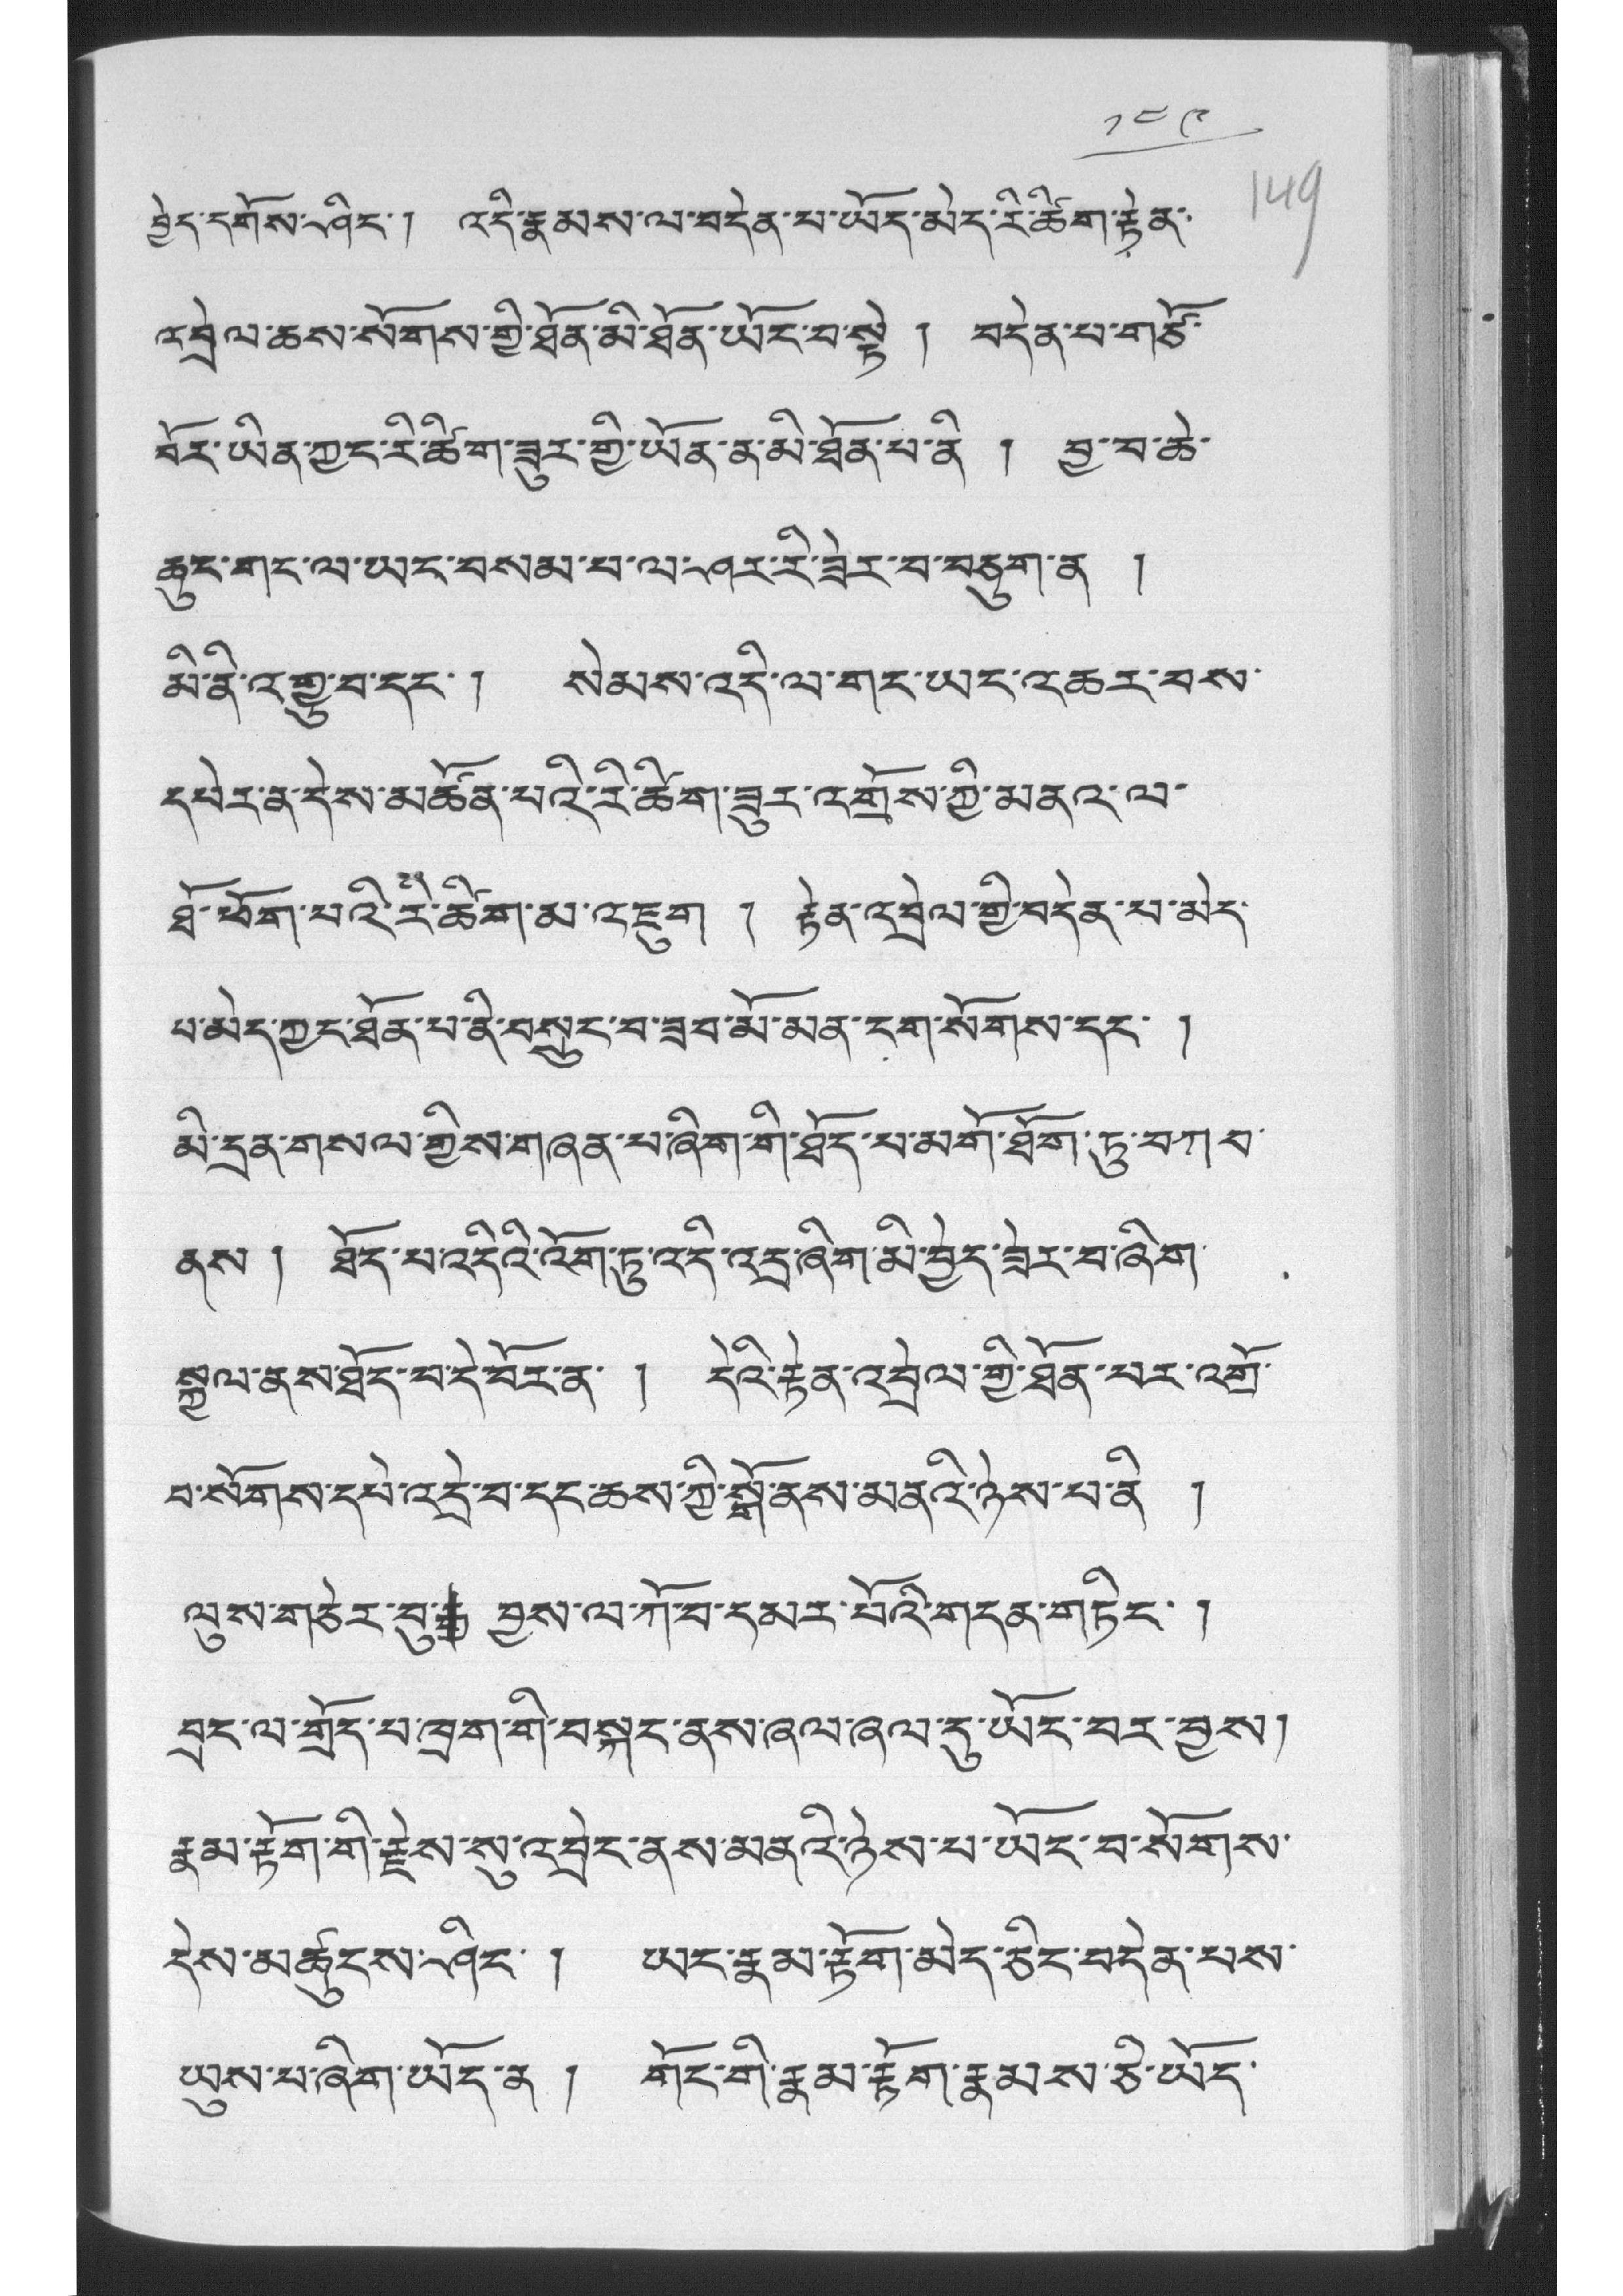 ༡༤༩
149
བྱེད་དགོས་ཤིང་། འདི་རྣམས་ལ་བདེན་པ་ཡོད་མེད་རི་ཚིག་རྟེན་
འབྲེལ་ཆས་སོགས་ཀྱི་ཐོན་མི་ཐོན་ཡོང་བ་སྟེ། བདེན་པ་གཙོ་
བོར་ཡིན་ཀྱང་རི་ཚིག་ཟུར་གྱི་ཡོན་ན་མི་ཐོན་པ་ནི། བྱ་བ་ཆེ་
ཆུང་གང་ལ་ཡང་བསམ་པ་ལ་ཤར་རི་ཟེར་བ་བཅུག་ན།
མི་ནི་འགྱུ་བ་དང་། སེམས་འདི་ལ་གང་ཡང་འཆར་བས་
དཔེར་ན་དེས་མཚོན་པའི་རི་ཚིག་ཟུར་འགྲོས་ཀྱི་མནའ་ལ་
ཐོ་ཕོག་པའི་རི་ཚིག་མ་འཇུག། རྟེན་འབྲེལ་གྱི་བདེན་པ་མེད་
པ་མེད་ཀྱང་ཐོན་པ་ནི་བསྲུང་བ་ཟབ་མོ་མན་ངག་སོགས་དང་།
མི་དྲན་གསལ་གྱིས་གཞན་པ་ཞིག་གི་ཐོད་པ་མགོ་ཐོག་ཏུ་བཀབ་
ནས། ཐོད་པ་འདིའི་འོག་ཏུ་འདི་འདྲ་ཞིག་མི་བྱེད་ཟེར་བ་ཞིག་
སྐྱལ་ནས་ཐོད་པ་དེ་བོར་ན་། དེའི་རྟེན་འབྲེལ་གྱི་ཐོན་པར་འགྲོ་
བ་སོགས་དཔེ་འདྲེ་བ་དང་ཆས་ཀྱི་སྒོ་ནས་མནའི་ཉེས་པ་ནི།
ལུས་གཅེར་བུ་བྱས་ལ་ཀོ་བ་དམར་པོའི་གདན་གཏིང་།
བྲང་ལ་གྲོད་པ་ཁྲག་གི་བསྐང་ནས་ཞལ་ཞལ་དུ་ཡོང་བར་བྱས།
རྣམ་རྟོག་གི་རྗེས་སུ་འབྲེང་ནས་མནའི་ཉེས་པ་ཡོང་བ་སོགས་
དེས་མཚུངས་ཤིང་། ཡང་རྣམ་རྟོག་མེད་ཅིང་བདེན་པས་
ཡུས་པ་ཞིག་ཡོད་ན། གོང་གི་རྣམ་རྟོག་རྣམས་ཅི་ཡོད་